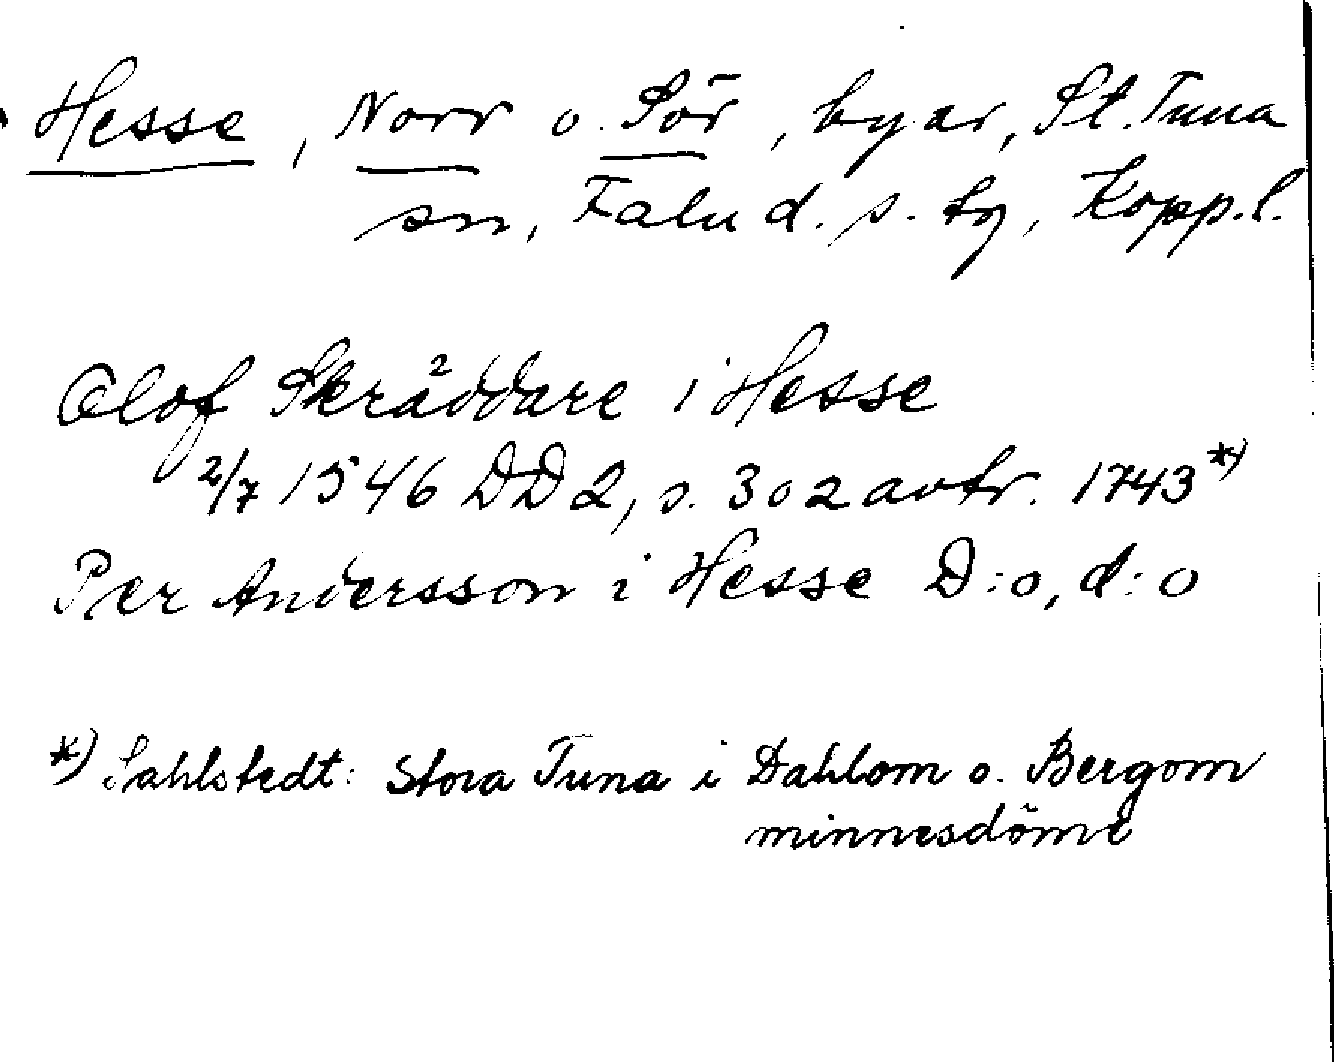 Hesse, Norr o. Sör, byar, St. Tuna
sn, Falu d. s. tg, Kopp.l.
Olof Skräddare i Hesse
2/7 1546 DD2, s. 302 avtr. 1743*)
Per Andersson i Hesse D:o, d:o
*) Sahlstedt: Stora Tuna i Dahlom o. Bergom
minnesdöme